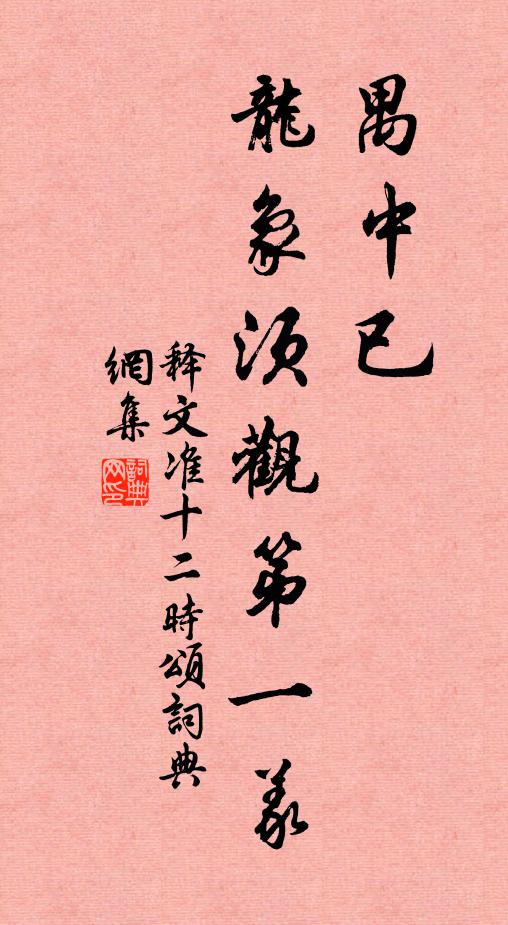 禺中巳
龍象須觀第一義
释文准十二時頌詞典
網集
詞典网印